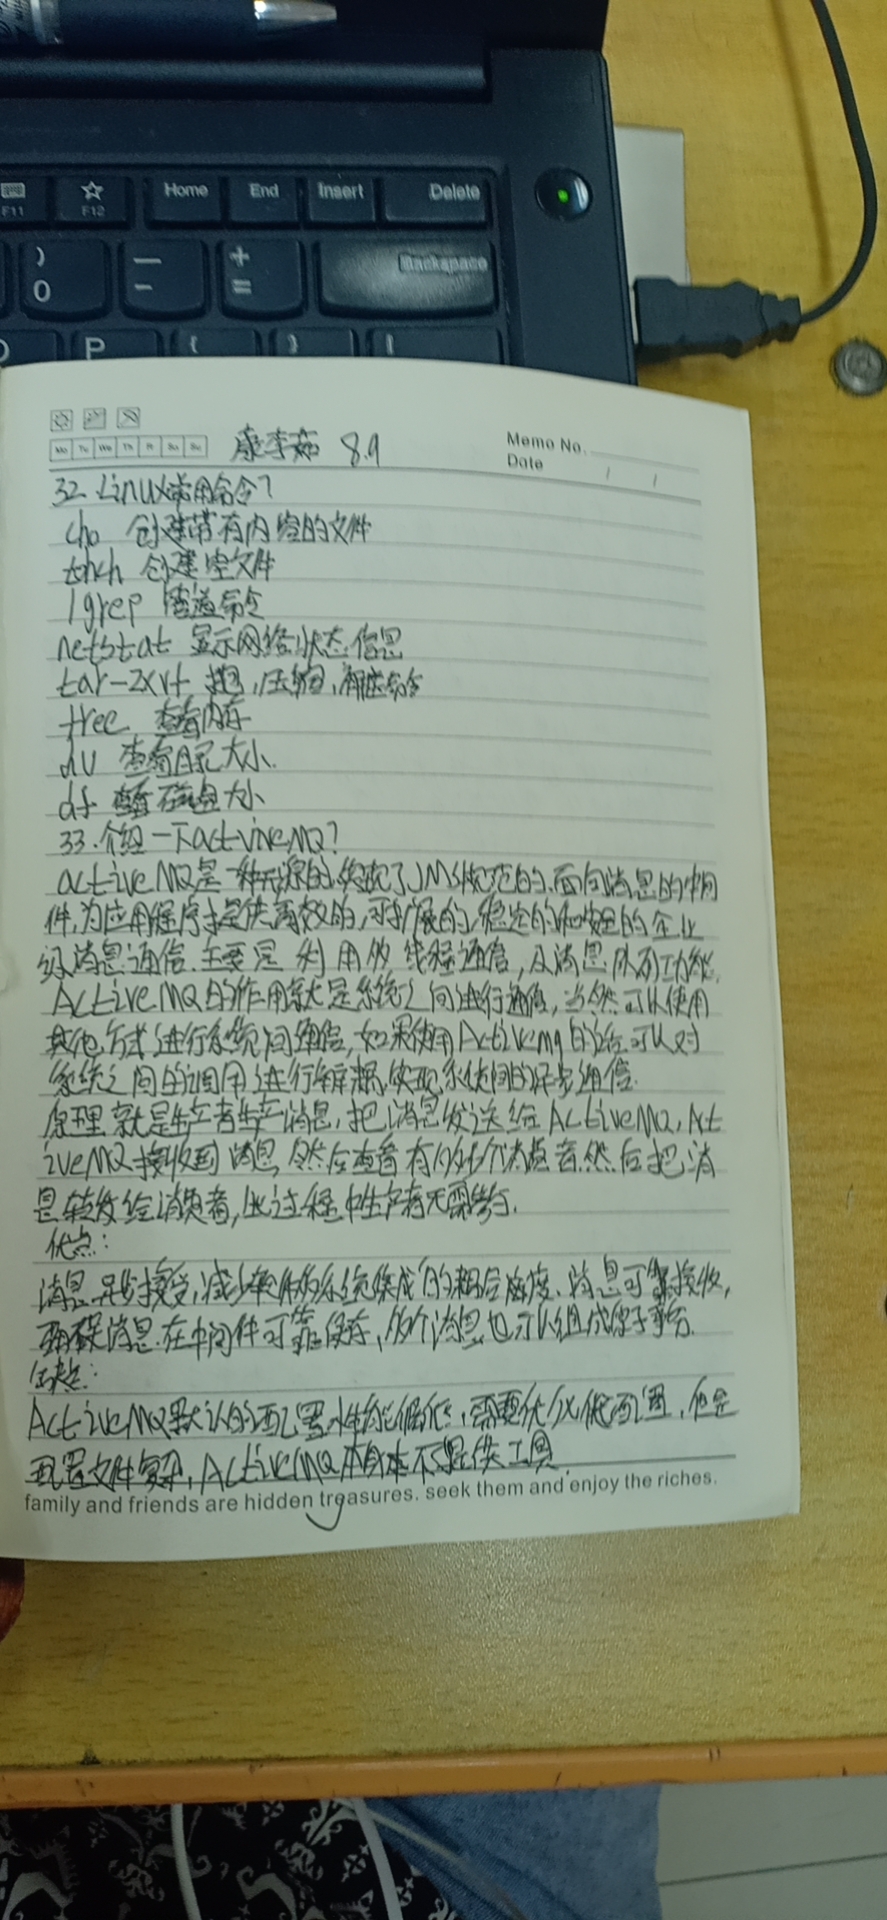 F11 F12 Home End Insert Delete
) 0 — - + = Backspace
P { } |
Mo Tu We Th Fr Sa Su 康李茹 8.9 Memo No.
Date / /
32. Linux常用命令?
cho 创建带有内容的文件
touch 创建空文件
|grep 管道命令
netstat 显示网络状态信息
tar-zxvf 打包,压缩,解压命令
free 查看内存
du 查看目录大小.
df 查看磁盘大小
33.介绍一下activineMQ?
activeMQ是一种开源的,实现了JMS规范的,面向消息的中间
件,为应用程序提供高效的,可扩展的,稳定的和安全的企业
级消息通信.主要是利用的线程通信,及消息队列功能.
ActiveMQ的作用就是系统之间进行通信,当然可以使用
其他方式进行系统间通信,如果使用Activemq的话可以对
系统之间的调用进行解耦,实现系统间的异步通信.
原理就是生产者生产消息,把消息发送给ActiveMQ,Act
iveMQ接收到消息,然后查看有多少个消费者,然后把消
息转发给消费者,此过程中生产者无需参与.
优点:
消息异步接受,减少软件多系统集成的耦合度、消息可靠接收,
确保消息在中间件可靠保存,多个消息也可以组成原子事务.
缺点:
ActiveMQ默认的配置性能偏低,需要优化配置,但是
配置文件复杂,ActiveMQ本身不提供工具.
family and friends are hidden treasures. seek them and enjoy the riches.